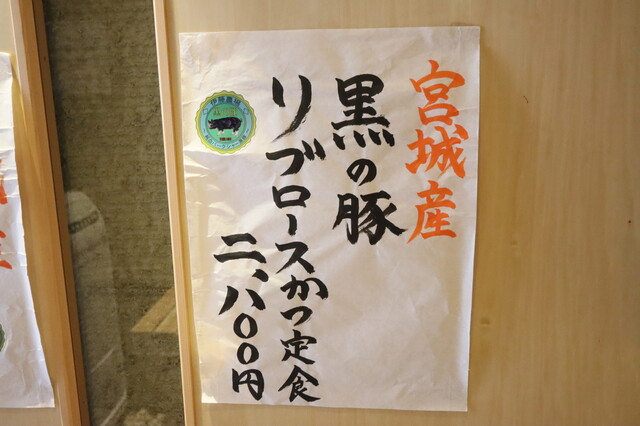 宮城産
黒の豚
リブロースかつ定食
二、八〇〇円